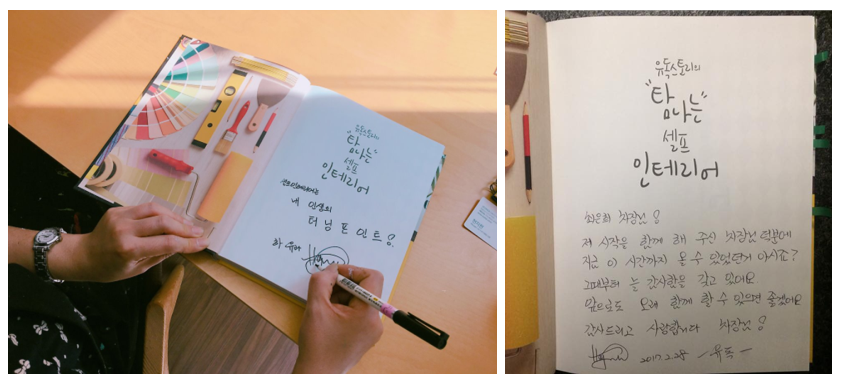 유독스토리의
"탐나는"
셀프
인테리어
내 인생의
터닝 포인트!
유독스토리의
"탐나는"
셀프
인테리어
최은희 차장님!
제 시작을 함께 해 주신 차장님 덕분에
지금 이 시간까지 올 수 있었던거 아시죠?
그때부터 늘 감사함을 갖고 있어요
앞으로도 오래 함께 할 수 있으면 좋겠어요
감사드리고 사랑합니다 차장님!
2017.2.28 -유독-